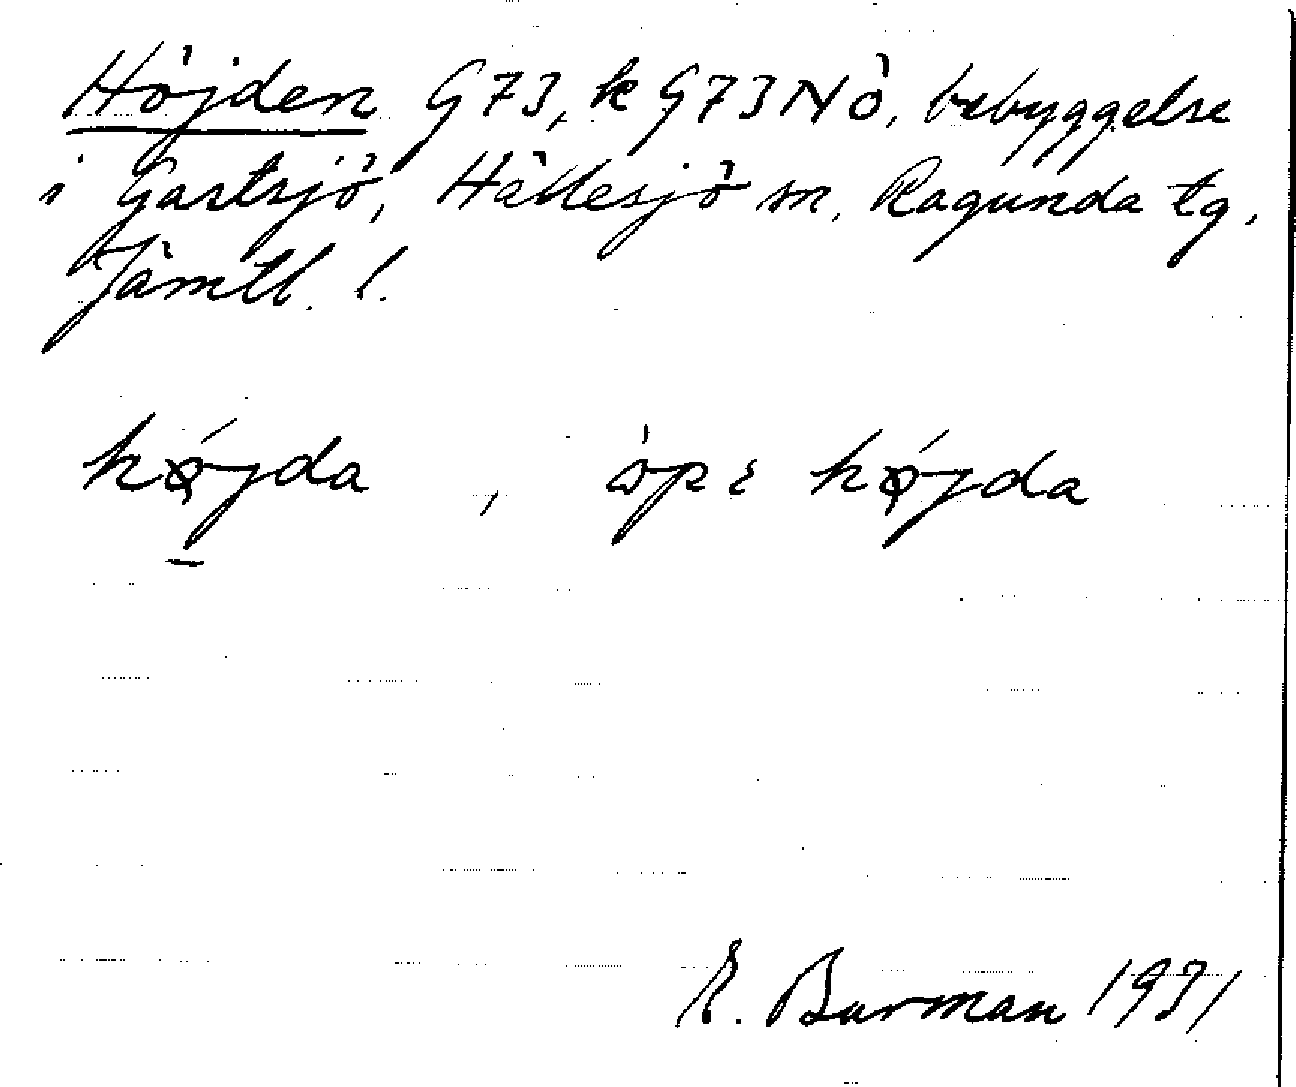 Höjden G73, k G73 NÖ, bebyggelse
i Gastsjö, Hällesjö sn, Ragunda tg,
Jämtl. l.
hǿjda , òpɛ hǿjda
E. Burman 1931